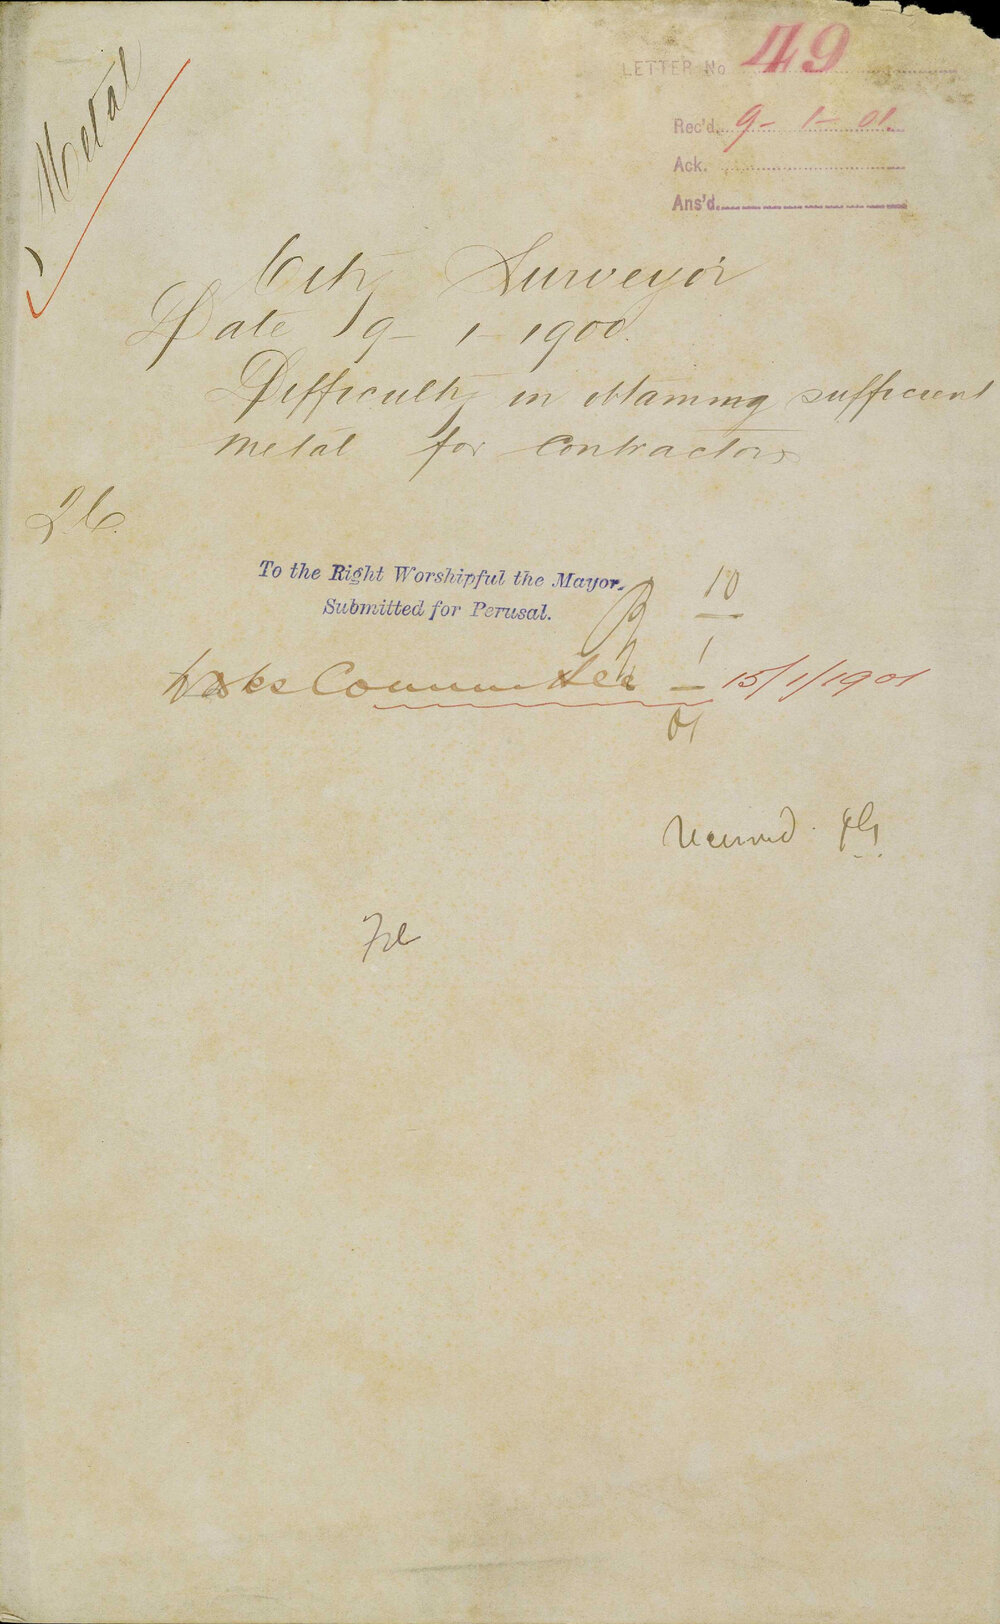 Metal
LETTER No 49
Rec'd. 9-1-01.
Ack.
Ans'd.
City Surveyor
Date 9-1-1900.
Difficulty in obtaining sufficient
metal for Contractors
To the Right Worshipful the Mayor.
Submitted for Perusal.
10
1
01
Works Committee 15/1/1901
Received
File